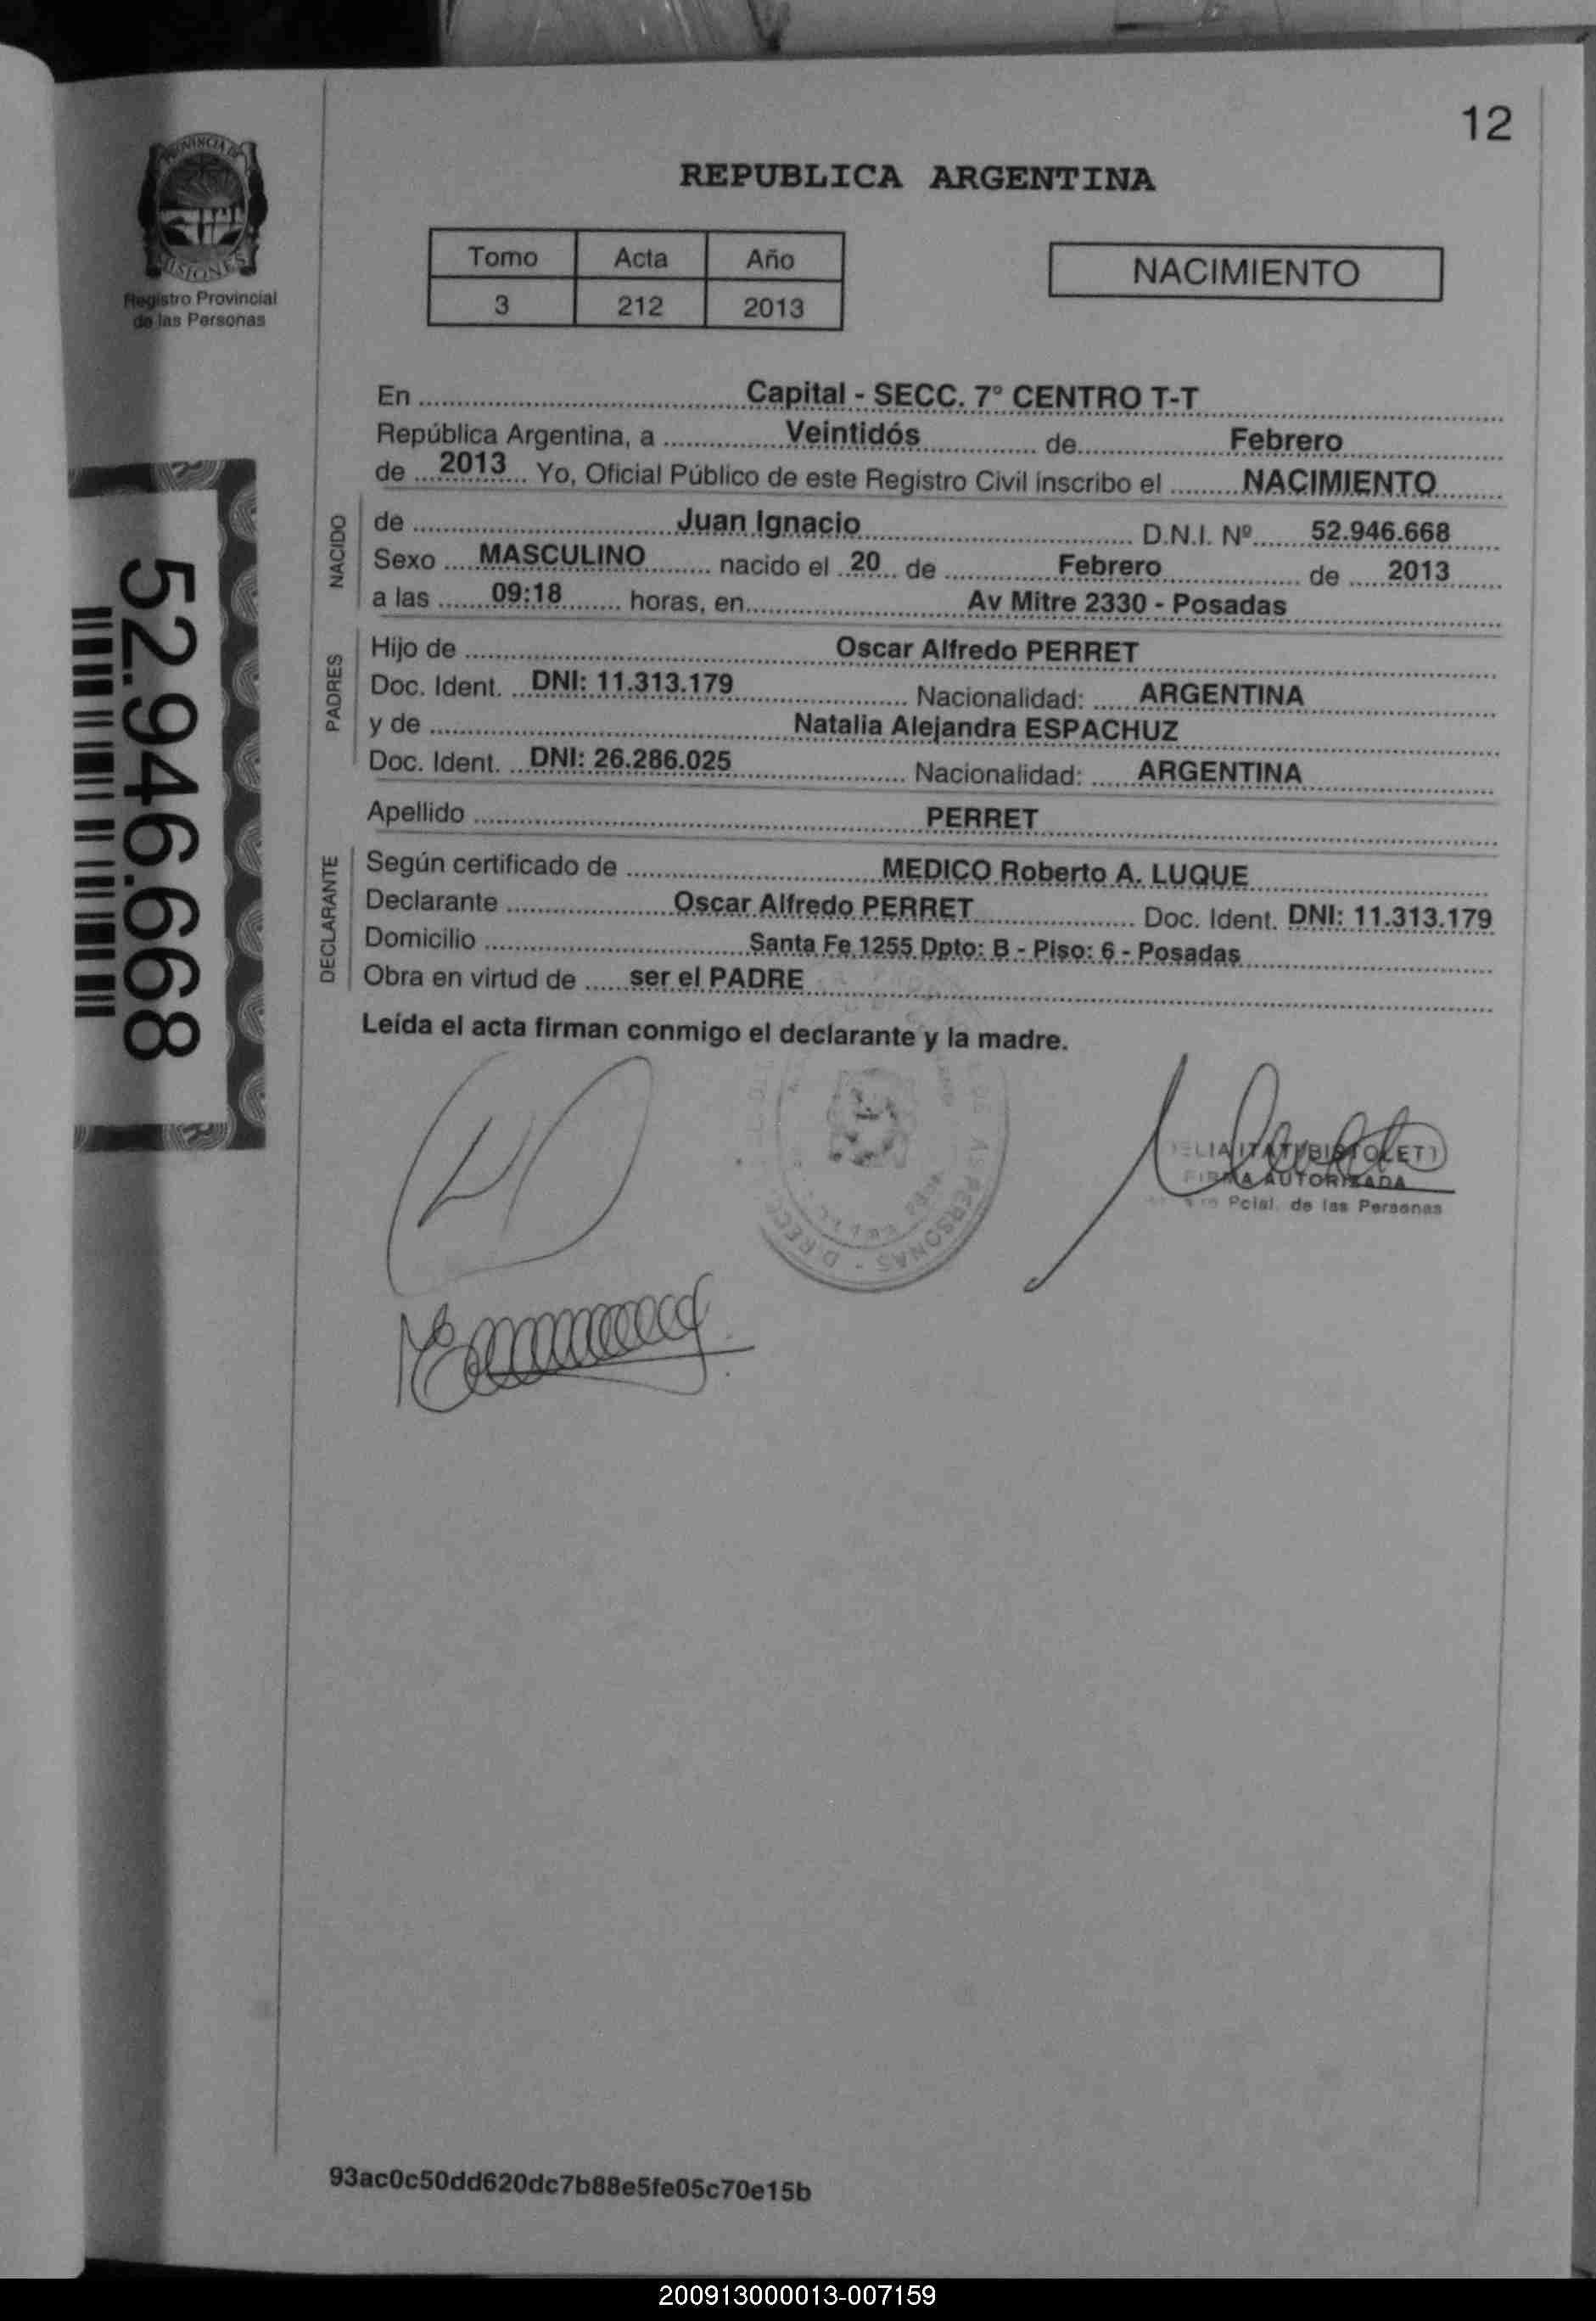 12
PROVINCIA DE
MISIONES
Registro Provincial
de las Personas
REPUBLICA ARGENTINA
Tomo Acta Año
3 212 2013
NACIMIENTO
En Capital - SECC. 7° CENTRO T-T
República Argentina, a Veintidós de Febrero
de 2013 Yo, Oficial Público de este Registro Civil inscribo el NACIMIENTO
NACIDO
de Juan Ignacio D.N.I. Nº 52.946.668
Sexo MASCULINO nacido el 20 de Febrero de 2013
a las 09:18 horas, en Av Mitre 2330 - Posadas
PADRES
Hijo de Oscar Alfredo PERRET
Doc. Ident. DNI: 11.313.179 Nacionalidad: ARGENTINA
y de Natalia Alejandra ESPACHUZ
Doc. Ident. DNI: 26.286.025 Nacionalidad: ARGENTINA
Apellido PERRET
DECLARANTE
Según certificado de MEDICO Roberto A. LUQUE
Declarante Oscar Alfredo PERRET Doc. Ident. DNI: 11.313.179
Domicilio Santa Fe 1255 Dpto: B - Piso: 6 - Posadas
Obra en virtud de ser el PADRE
Leída el acta firman conmigo el declarante y la madre.
52.946.668
FIRMA AUTORIZADA
Pcial. de las Personas
PERSONAS
93ac0c50dd620dc7b88e5fe05c70e15b
200913000013-007159